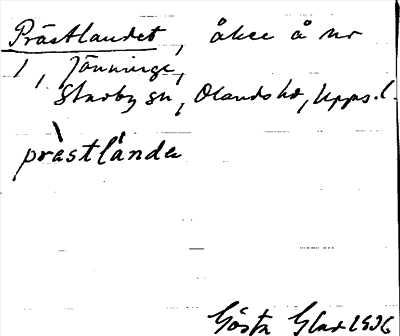 Prästlandet, åker å nr
1, Jönninge,
Starby sn, Olands hd, Upps. l.
prästlånda
Gösta Glad 1936